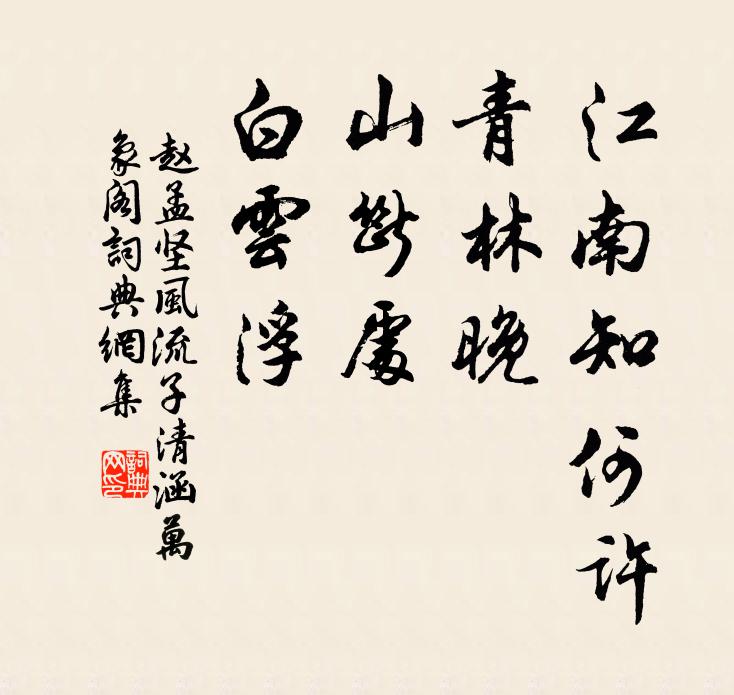 江南知何許
青林晚
山斷處
白雲浮
赵孟坚風流子清涵萬
象阁詞典網集
詞典
网印